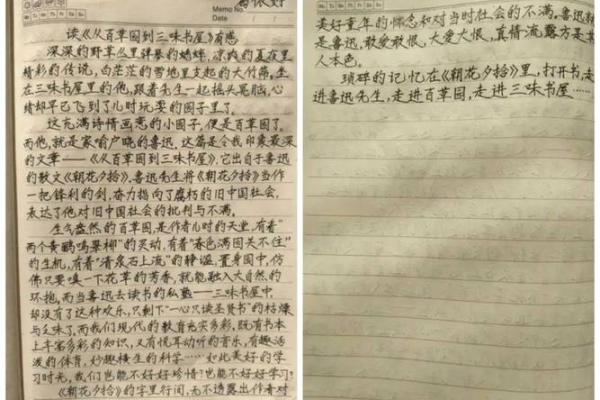 很好
Memo No.
Date
读《从百草园到三味书屋》有感
深深的野草丛里弹琴的蟋蟀,凉爽的夏夜里
精彩的传说,白茫茫的雪地里支起的大竹筛,坐
在三味书屋里的他,跟着先生一起摇头晃脑,心
绪却早已飞到了儿时玩耍的园子里了。
这充满诗情画意的小园子,便是百草园了。
而他,就是家喻户晓的鲁迅.这篇是令我印象最深
的文章——《从百草园到三味书屋》,它出自于鲁迅
的散文《朝花夕拾》.鲁迅先生将《朝花夕拾》当作
一把锋利的剑,奋力指向了腐朽的旧中国社会,
表达了他对旧中国社会的批判与不满。
生气盎然的百草园,是作者儿时的天堂,有着"
两个黄鹂鸣翠柳"的灵动,有着"春色满园关不住"
的生机,有着"清泉石上流"的静谧,置身园中,仿
佛只要嗅一下花草的芳香,就能融入大自然的
环抱,而当鲁迅去读书的私塾——三味书屋中,
却没有了这种欢乐,只剩下"一心只读圣贤书"的枯燥
与乏味了.而我们现代的教育充实多彩,既有书本
上丰富多彩的知识,又有悦耳动听的音乐,有趣活
泼的体育,妙趣横生的科学……如此美好的学
习时光,我们岂能不好好珍惜?岂能不好好学习?
《朝花夕拾》的字里行间,无不透露出作者对
美好童年的怀念和对当时社会的不满,鲁迅
是鲁迅,敢爱敢恨,大爱大恨,真情流露方是其
人本色。
琐碎的记忆在《朝花夕拾》里,打开书,走
进鲁迅先生,走进百草园,走进三味书屋……